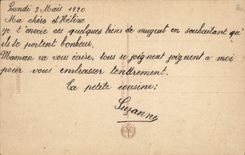 Lundi 2 Mais 1920
Ma chère et Hélène
je t'envoie ces quelques brins de muguet en souhaitant qu'
ils te portent bonheur.
Maman va vous écrire, tous se joignent joignent a moi
pour vous embrasser tendrement.
Ta petite cousine:
Suzanne